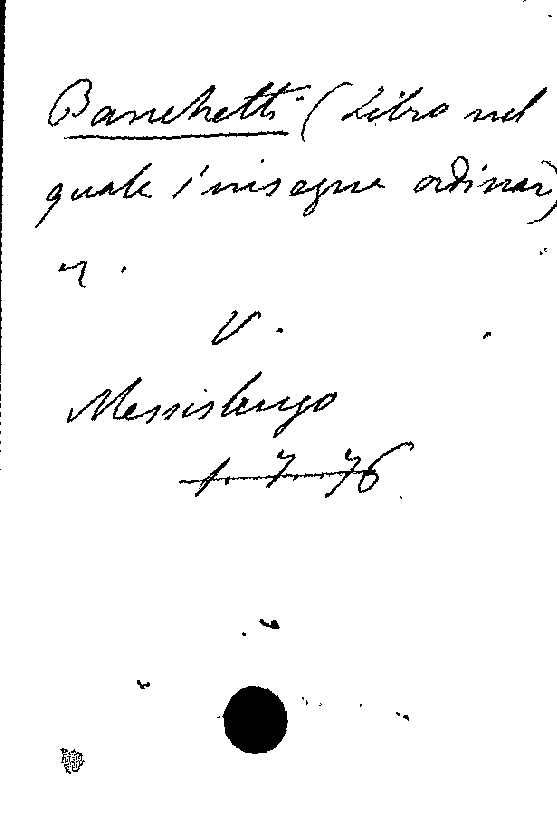 Banchetti (Libro nel
quale s'insegna ordinar)
V.
Messisbugo
1. 7. 76